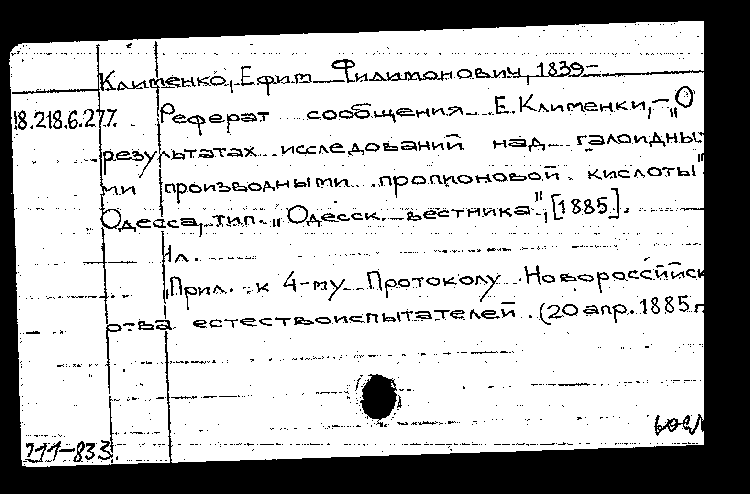 Клименко, Ефим Филимонович, 1839-
18.218.6.277. Реферат сообщения Е. Клименки, - „О
результатах исследований над галоидны-
ми производными пропионовой кислоты".
Одесса, тип. „Одесск. вестника", [1885].
1л.
„Прил. к 4-му Протоколу Новороссийск
о-тва естествоиспытателей. (20 апр. 1885 г
211-833.